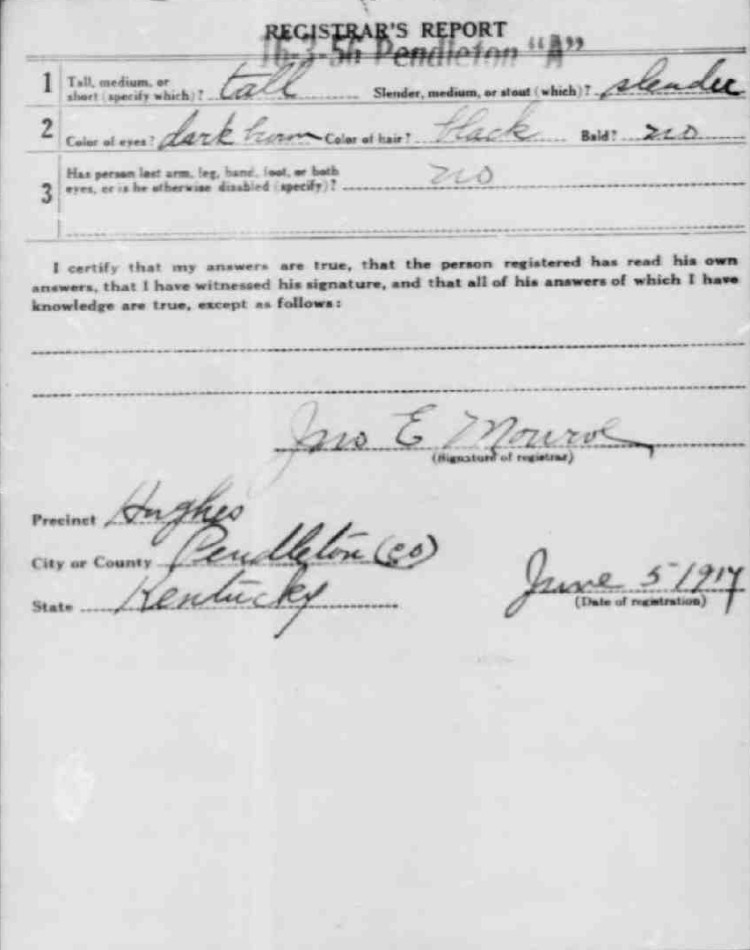 REGISTRAR'S REPORT
16-3-56 Pendleton "A"
1 Tall, medium, or short (specify which)? tall Slender, medium, or stout (which)? slender
2 Color of eyes? dark brown Color of hair? black Bald? no
3 Has person lost arm, leg, hand, foot, or both
eyes, or is he otherwise disabled (specify)? no
I certify that my answers are true, that the person registered has read his own
answers, that I have witnessed his signature, and that all of his answers of which I have
knowledge are true, except as follows:
Jno E Monroe
(Signature of registrar)
Precinct Hughes
City or County Pendleton (co)
State Kentucky
June 5 1917
(Date of registration)